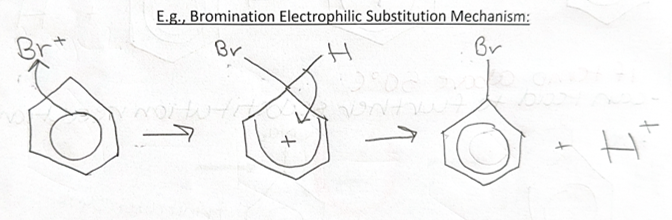 E.g., Bromination Electrophilic Substitution Mechanism:
Br+
Br H
+
Br
+ H+